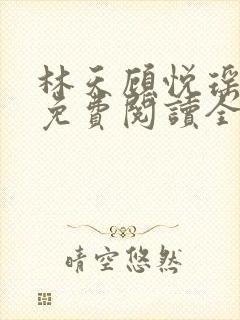 林天顾悦瑶
免費閱讀全
晴空悠然